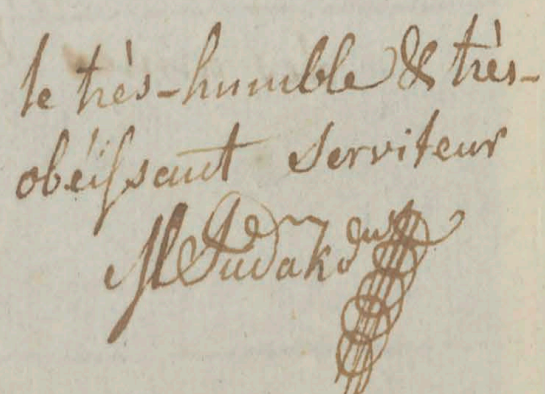 le très-humble & très-
obéissant serviteur